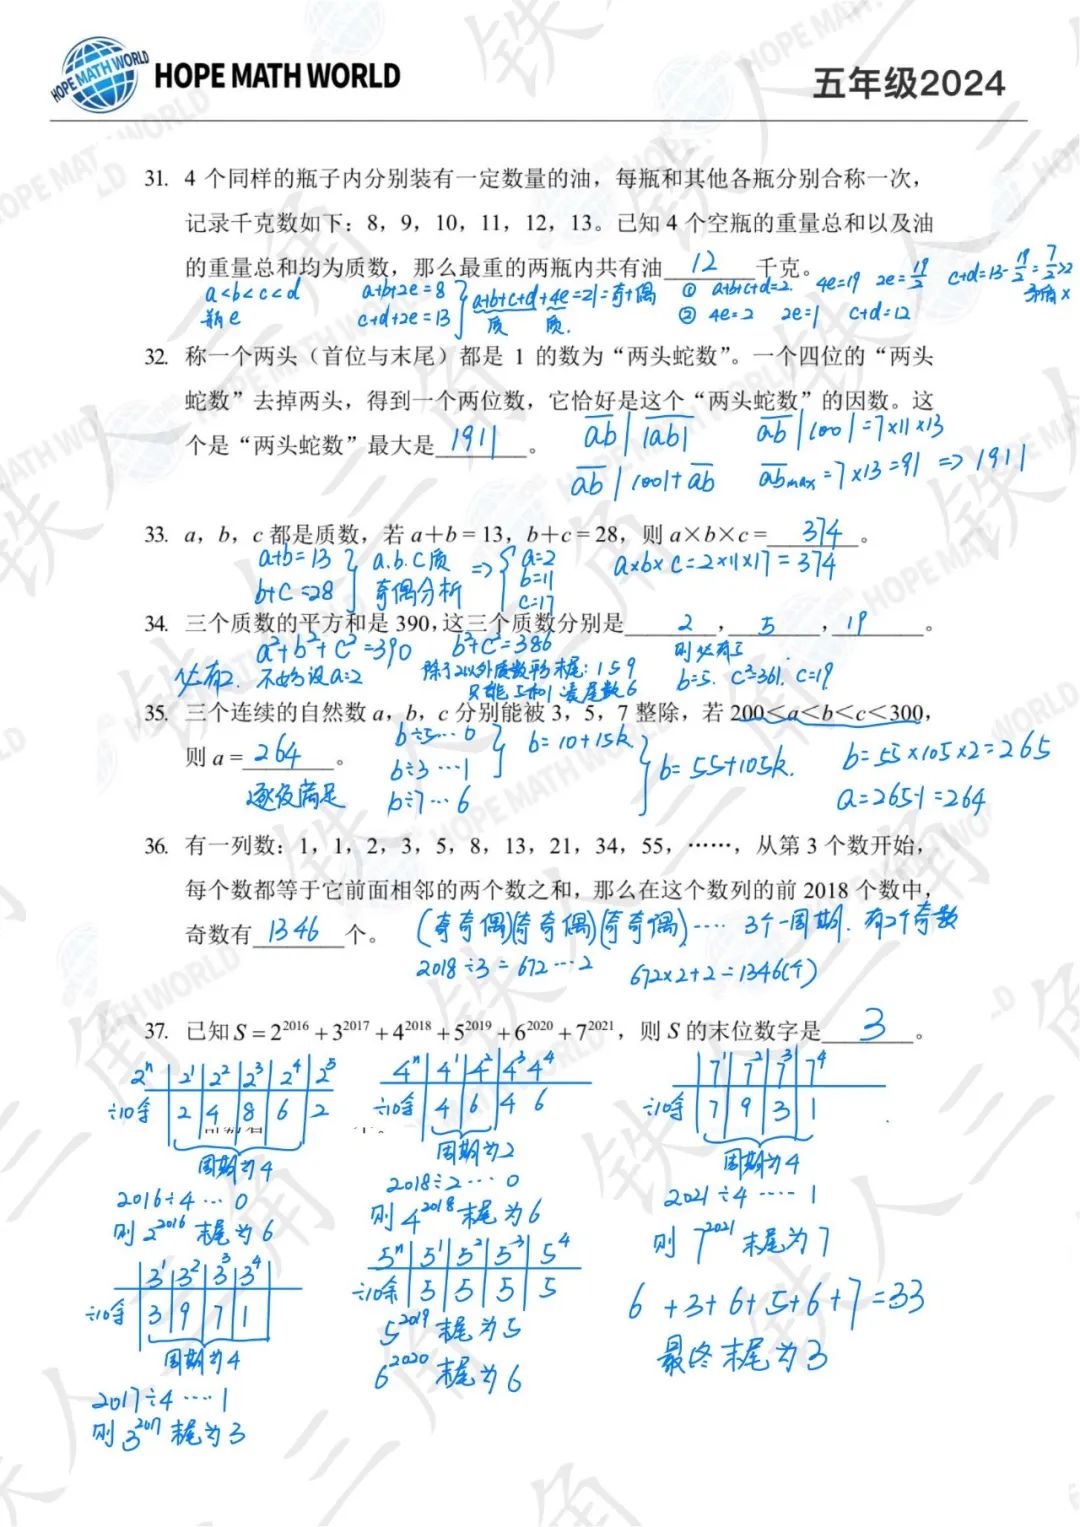 HOPE MATH WORLD
五年级2024
31. 4 个同样的瓶子内分别装有一定数量的油，每瓶和其他各瓶分别合称一次，
记录千克数如下：8，9，10，11，12，13。已知 4 个空瓶的重量总和以及油
的重量总和均为质数，那么最重的两瓶内共有油 12 千克。
a<b<c<d a+b+2e=8 a+b+c+d+4e=21=奇+偶 ① a+b+c+d=2. 4e=19 2e=19/2 c+d=13-19/2=7/2>2
瓶e c+d+2e=13 质 质. ② 4e=2 2e=1 c+d=12 矛盾×
32. 称一个两头（首位与末尾）都是 1 的数为“两头蛇数”。一个四位的“两头
蛇数”去掉两头，得到一个两位数，它恰好是这个“两头蛇数”的因数。这
个是“两头蛇数”最大是 1911 。
ab | 1ab1 ab | 1001=7×11×13
ab | 1001+ab abmax=7×13=91 => 1911
33. a，b，c 都是质数，若 a＋b＝13，b＋c＝28，则 a×b×c＝ 374 。
a+b=13 a.b.c质 => a=2 a×b×c=2×11×17=374
b+c=28 奇偶分析 b=11
c=17
34. 三个质数的平方和是 390，这三个质数分别是 2 ， 5 ， 19 。
a²+b²+c²=390 b²+c²=386 则必有5
必有2. 不妨设a=2 除了2以外质数平方末尾：1 5 9 b=5. c²=361. c=19
只能5和1凑尾数6
35. 三个连续的自然数 a，b，c 分别能被 3，5，7 整除，若 200＜a＜b＜c＜300，
则 a＝ 264 。
b÷5…0 b=10+15k b=55+105k. b=55×105×2=265
b÷3…1
逐级满足 b÷7…6 a=265-1=264
36. 有一列数：1，1，2，3，5，8，13，21，34，55，……，从第 3 个数开始，
每个数都等于它前面相邻的两个数之和，那么在这个数列的前 2018 个数中，
奇数有 1346 个。
(奇奇偶)(奇奇偶)(奇奇偶)…… 3个一周期. 有2个奇数
2018÷3=672…2 672×2+2=1346(个)
37. 已知 S＝2²⁰¹⁶＋3²⁰¹⁷＋4²⁰¹⁸＋5²⁰¹⁹＋6²⁰²⁰＋7²⁰²¹，则 S 的末位数字是 3 。
2ⁿ 2¹ 2² 2³ 2⁴ 2⁵
÷10余 2 4 8 6 2
周期为4
2016÷4…0
则2²⁰¹⁶末尾为6
3¹ 3² 3³ 3⁴
÷10余 3 9 7 1
周期为4
2017÷4…1
则3²⁰¹⁷末尾为3
4ⁿ 4¹ 4² 4³ 4⁴
÷10余 4 6 4 6
周期为2
2018÷2…0
则4²⁰¹⁸末尾为6
5ⁿ 5¹ 5² 5³ 5⁴
÷10余 5 5 5 5
5²⁰¹⁹末尾为5
6²⁰²⁰末尾为6
7¹ 7² 7³ 7⁴
÷10余 7 9 3 1
周期为4
2021÷4……1
则7²⁰²¹末尾为7
6+3+6+5+6+7=33
最终末尾为3